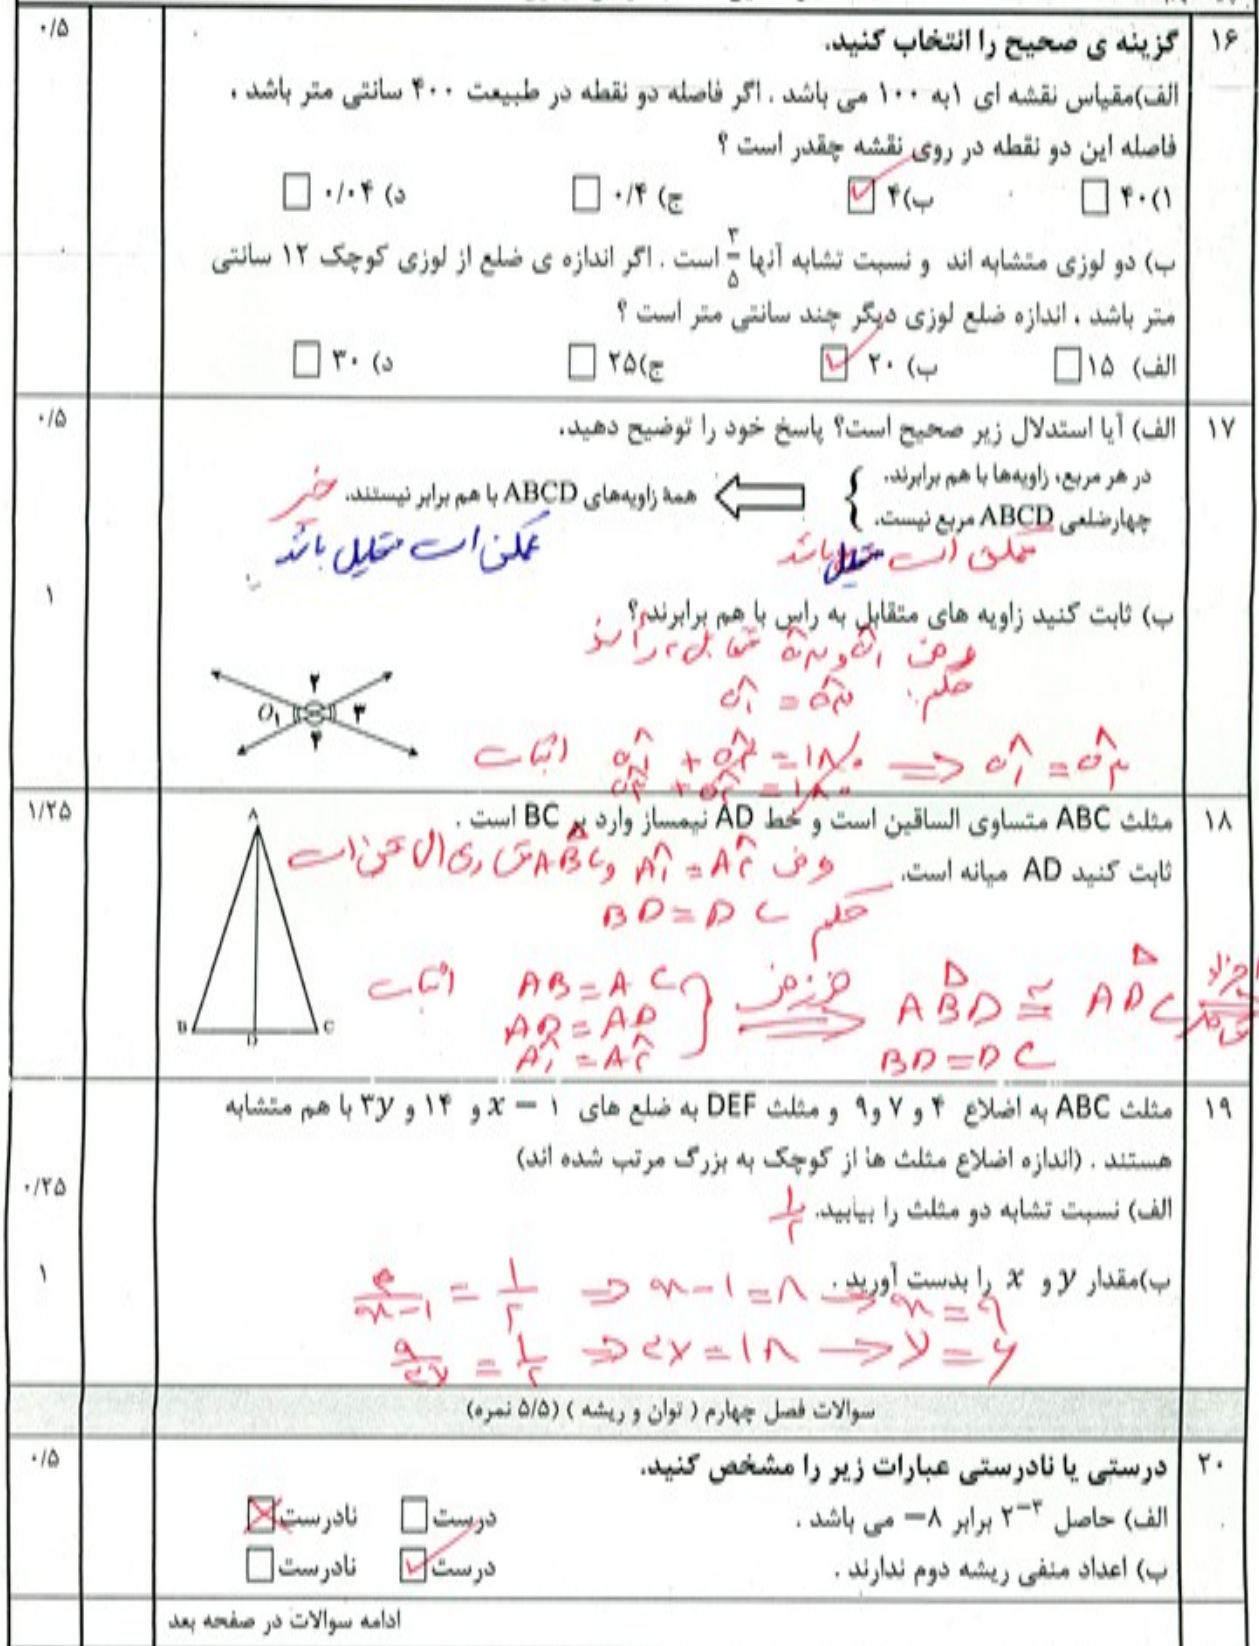 ۱۶ گزینه ی صحیح را انتخاب کنید. ۰/۵
الف)مقیاس نقشه ای ۱به ۱۰۰ می باشد . اگر فاصله دو نقطه در طبیعت ۴۰۰ سانتی متر باشد ،
فاصله این دو نقطه در روی نقشه چقدر است ؟
۱)۴۰ ب)۴ ج) ۰/۴ د) ۰/۰۴
ب) دو لوزی متشابه اند و نسبت تشابه آنها ۳/۵ است . اگر اندازه ی ضلع از لوزی کوچک ۱۲ سانتی
متر باشد ، اندازه ضلع لوزی دیگر چند سانتی متر است ؟
الف) ۱۵ ب) ۲۰ ج)۲۵ د) ۳۰
۱۷ الف) آیا استدلال زیر صحیح است؟ پاسخ خود را توضیح دهید. ۰/۵
در هر مربع، زاویه‌ها با هم برابرند.
چهارضلعی ABCD مربع نیست.
همهٔ زاویه‌های ABCD با هم برابر نیستند. خیر
ممکن است مستطیل باشد
ممکن است مستطیل باشد
ب) ثابت کنید زاویه های متقابل به راس با هم برابرند؟ ۱
فرض Ô۱ و Ô۳ متقابل به رأسند
حکم: Ô۱ = Ô۳
۲
O۱ ۳
۴
اثبات Ô۱ + Ô۲ = ۱۸۰ ⇒ Ô۱ = Ô۳
Ô۳ + Ô۲ = ۱۸۰
۱۸ مثلث ABC متساوی الساقین است و خط AD نیمساز وارد بر BC است . ۱/۲۵
ثابت کنید AD میانه است. فرض Â۱ = Â۲ و ABC متساوی الساقین است
حکم BD = DC
A
B D C
اثبات AB = AC
AD = AD
Â۱ = Â۲
ض ز ض ⇒ ABD ≅ ADC
BD = DC
۱۹ مثلث ABC به اضلاع ۴ و ۷ و۹ و مثلث DEF به ضلع های x − ۱ و ۱۴ و ۳y با هم متشابه
هستند . (اندازه اضلاع مثلث ها از کوچک به بزرگ مرتب شده اند)
الف) نسبت تشابه دو مثلث را بیابید. ۱/۲ ۰/۲۵
ب)مقدار y و x را بدست آورید . ۱
۴/(x−۱) = ۱/۲ ⇒ x−۱ = ۸ → x = ۹
۹/۳y = ۱/۲ ⇒ ۳y = ۱۸ → y = ۶
سوالات فصل چهارم ( توان و ریشه ) (۵/۵ نمره)
۲۰ درستی یا نادرستی عبارات زیر را مشخص کنید. ۰/۵
الف) حاصل ۲⁻³ برابر ۸− می باشد . درست نادرست
ب) اعداد منفی ریشه دوم ندارند . درست نادرست
ادامه سوالات در صفحه بعد